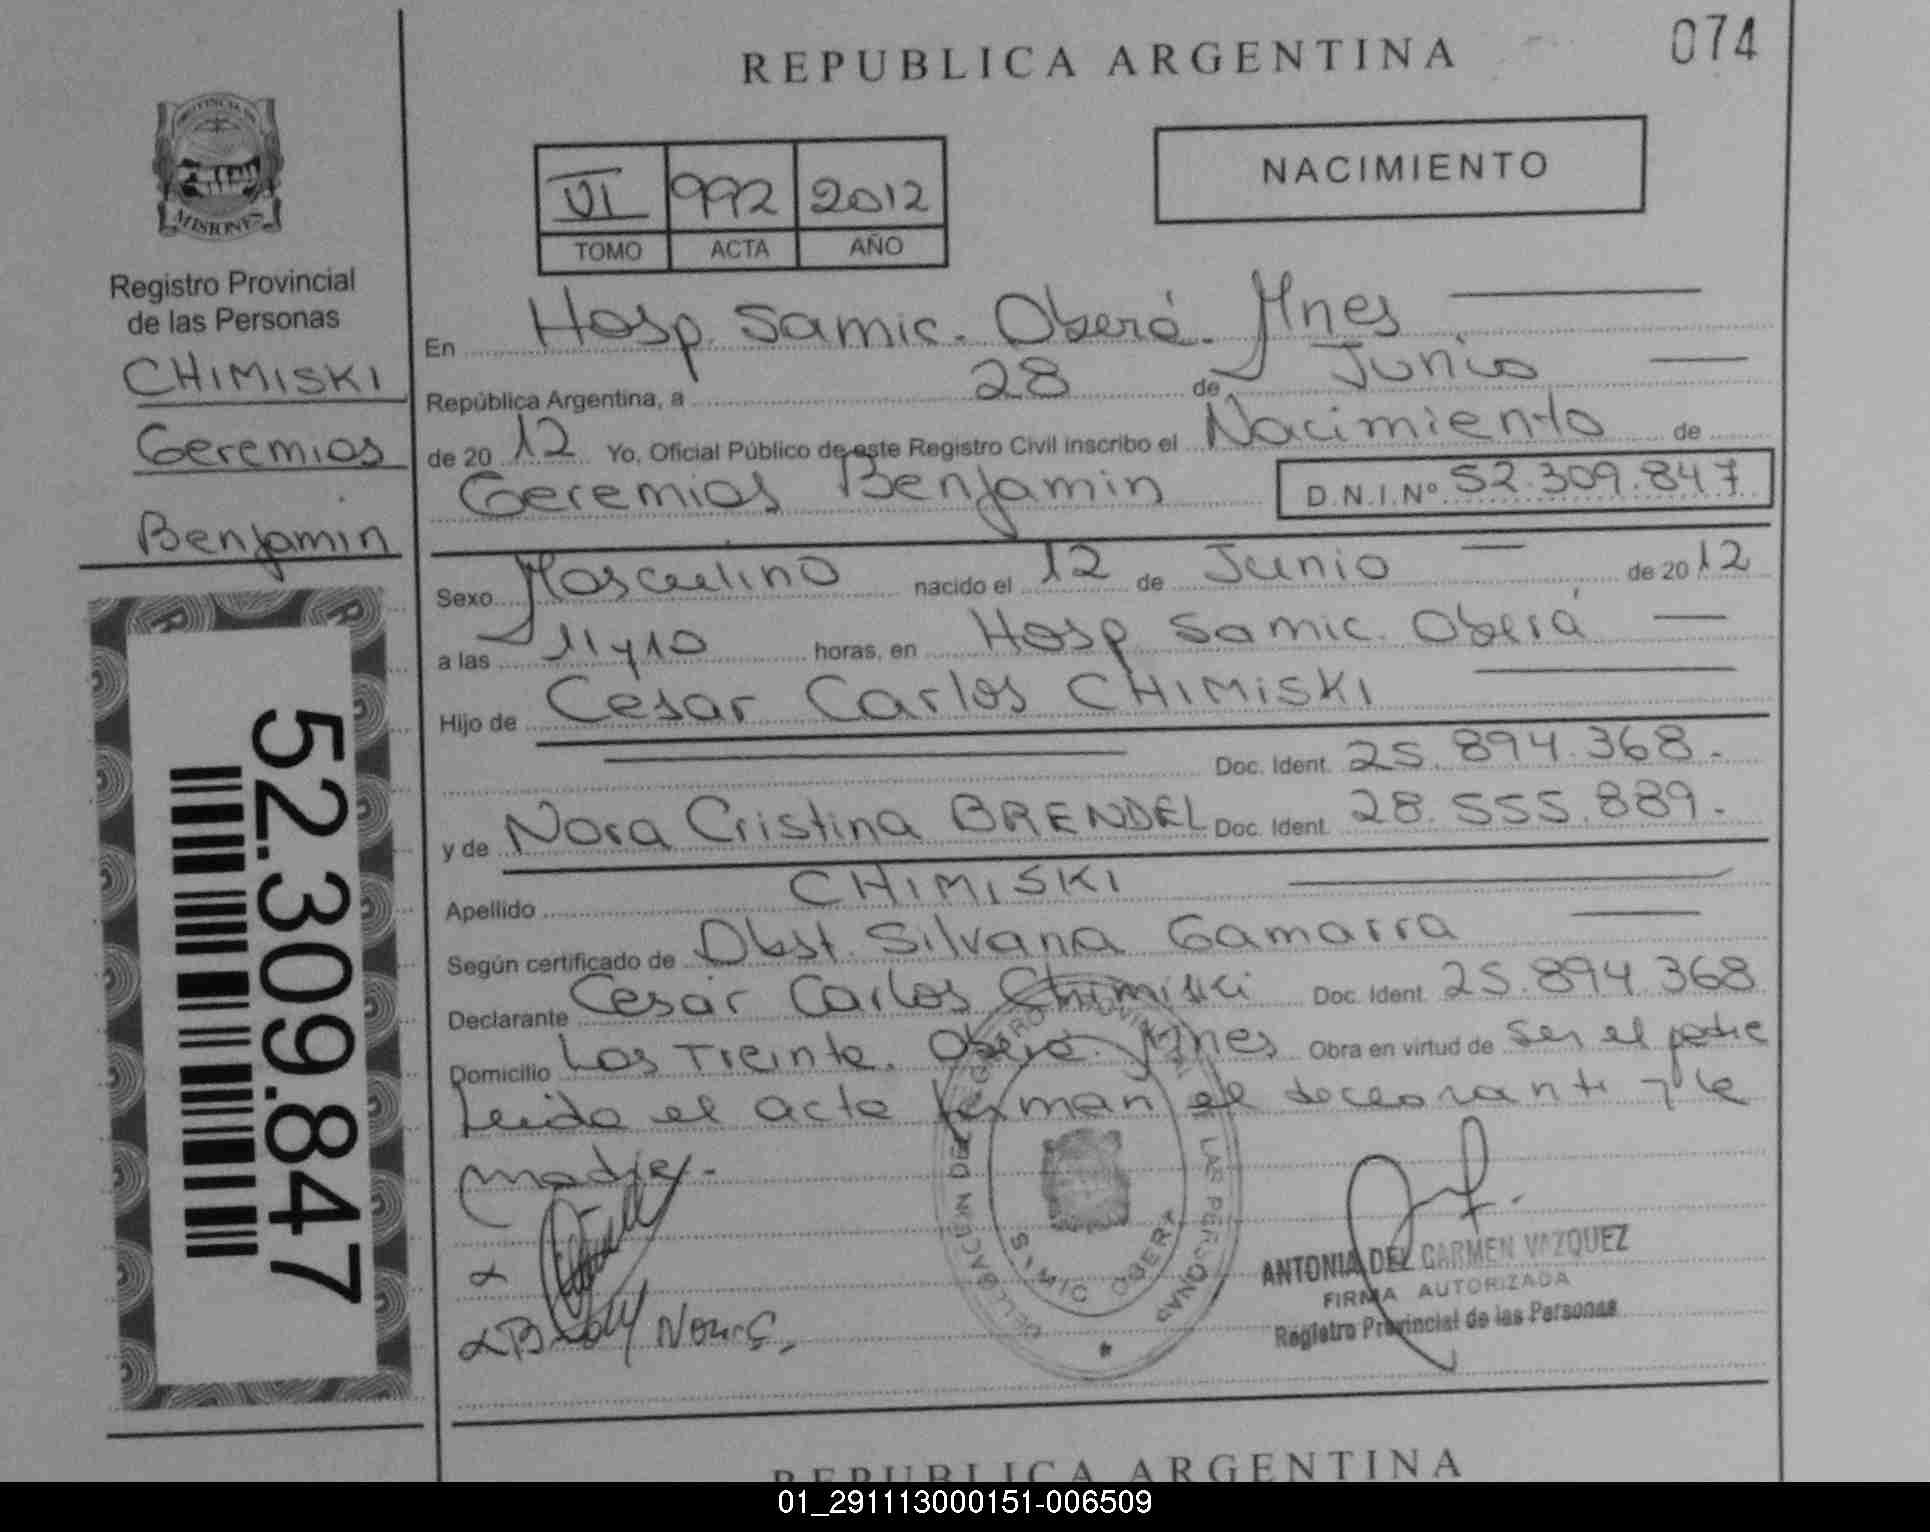 REPUBLICA ARGENTINA
074
PROVINCIA DE
MISIONES
Registro Provincial
de las Personas
CHIMISKI
Geremias
Benjamin
52.309.847
VI 992 2012
TOMO ACTA AÑO
NACIMIENTO
En Hosp. Samic. Oberá. Mnes
República Argentina, a 28 de Junio
de 2012 Yo, Oficial Público de este Registro Civil inscribo el Nacimiento de
Geremias Benjamin D.N.I.Nº 52.309.847
Sexo Masculino nacido el 12 de Junio de 2012
a las 11 y 10 horas, en Hosp Samic. Oberá
Hijo de Cesar Carlos CHIMISKI
Doc. Ident. 25.894.368.
y de Nora Cristina BRENDEL Doc. Ident. 28.555.889.
Apellido CHIMISKI
Según certificado de Obst. Silvana Gamarra
Declarante Cesar Carlos Chimiski Doc. Ident. 25.894.368
Domicilio Los Treinta. Oberá. Mnes Obra en virtud de ser el padre
Leida el acta firman el declarante y la
madre.-
DELEGACION DEL REGISTRO PROVINCIAL DE LAS PERSONAS
OBERA
ANTONIA DEL CARMEN VAZQUEZ
FIRMA AUTORIZADA
Registro Provincial de las Personas
REPUBLICA ARGENTINA
01_291113000151-006509